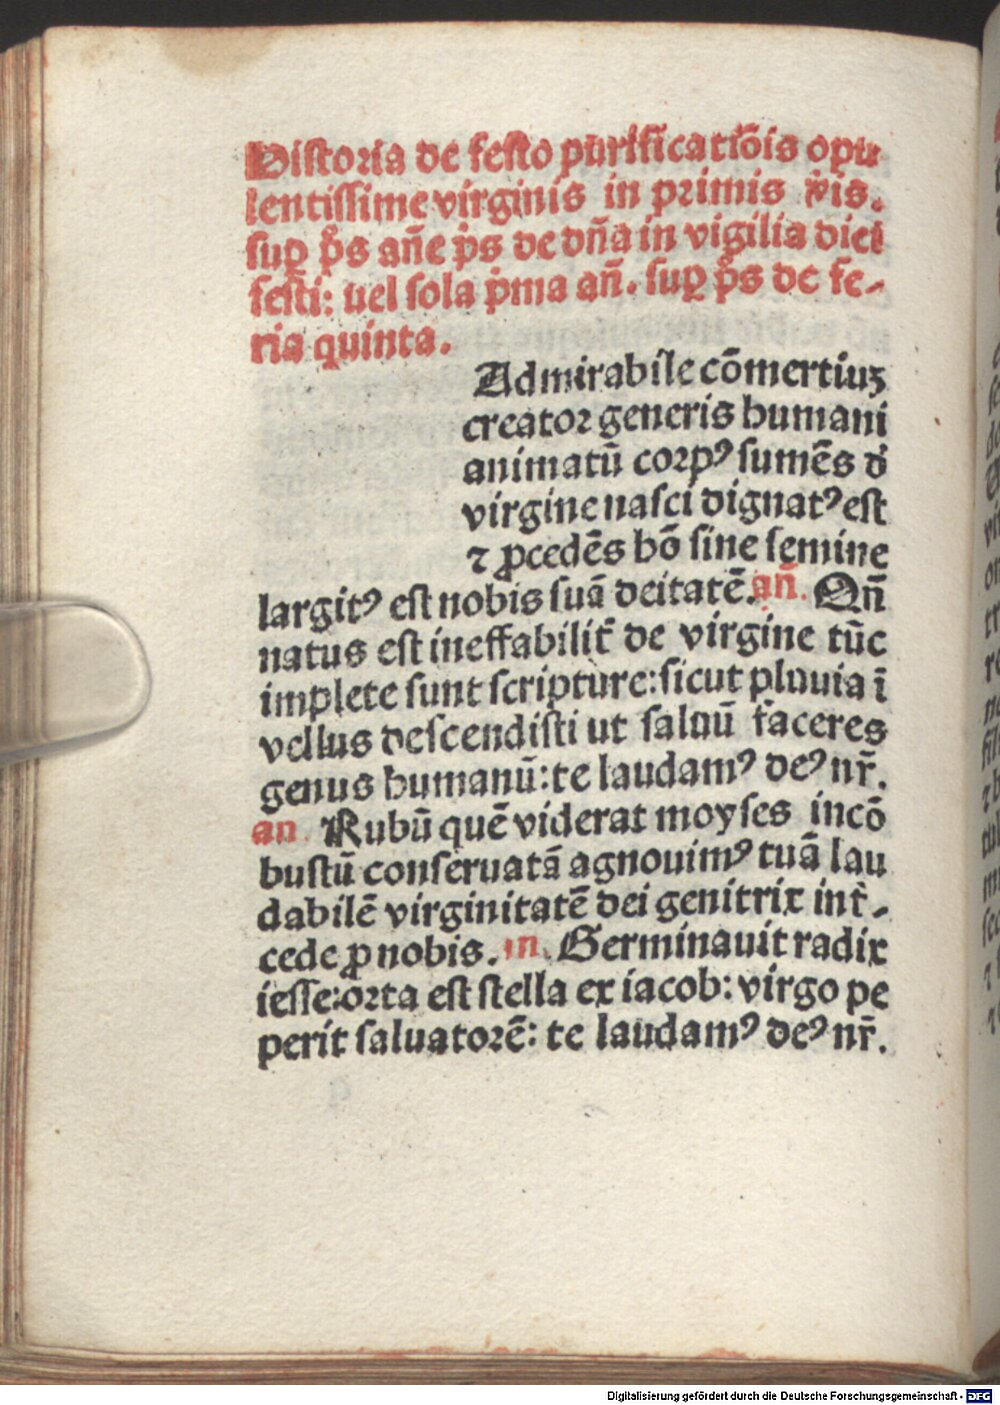 Historia de festo purificatiōis opu
lentissime virginis in primis v̄is.
suꝑ p̄s an̄e ps de dn̄a in vigilia diei
festi: uel sola pͥma an̄. suꝑ p̄s de fe-
ria quinta.
Admirabile cōmertiuꝫ
creator generis humani
animatū corpꝰ sumēs d̕
virgine nasci dignatꝰ est
⁊ ꝓcedēs hō sine semine
largitꝰ est nobis suā deitatē. an̄. Qn̄
natus est ineffabilit̄ de virgine tūc
implete sunt scripture: sicut pluuia ī
vellus descendisti ut saluū faceres
genus humanū: te laudamꝰ deꝰ nr̄.
an. Rubū quē viderat moyses incō
bustū conseruatā agnouimꝰ tuā lau
dabilē virginitatē dei genitrix int̄-
cede ꝓ nobis. an. Germinauit radix
iesse: orta est stella ex iacob: virgo pe
perit saluatorē: te laudamꝰ deꝰ nr̄.
Digitalisierung gefördert durch die Deutsche Forschungsgemeinschaft - DFG